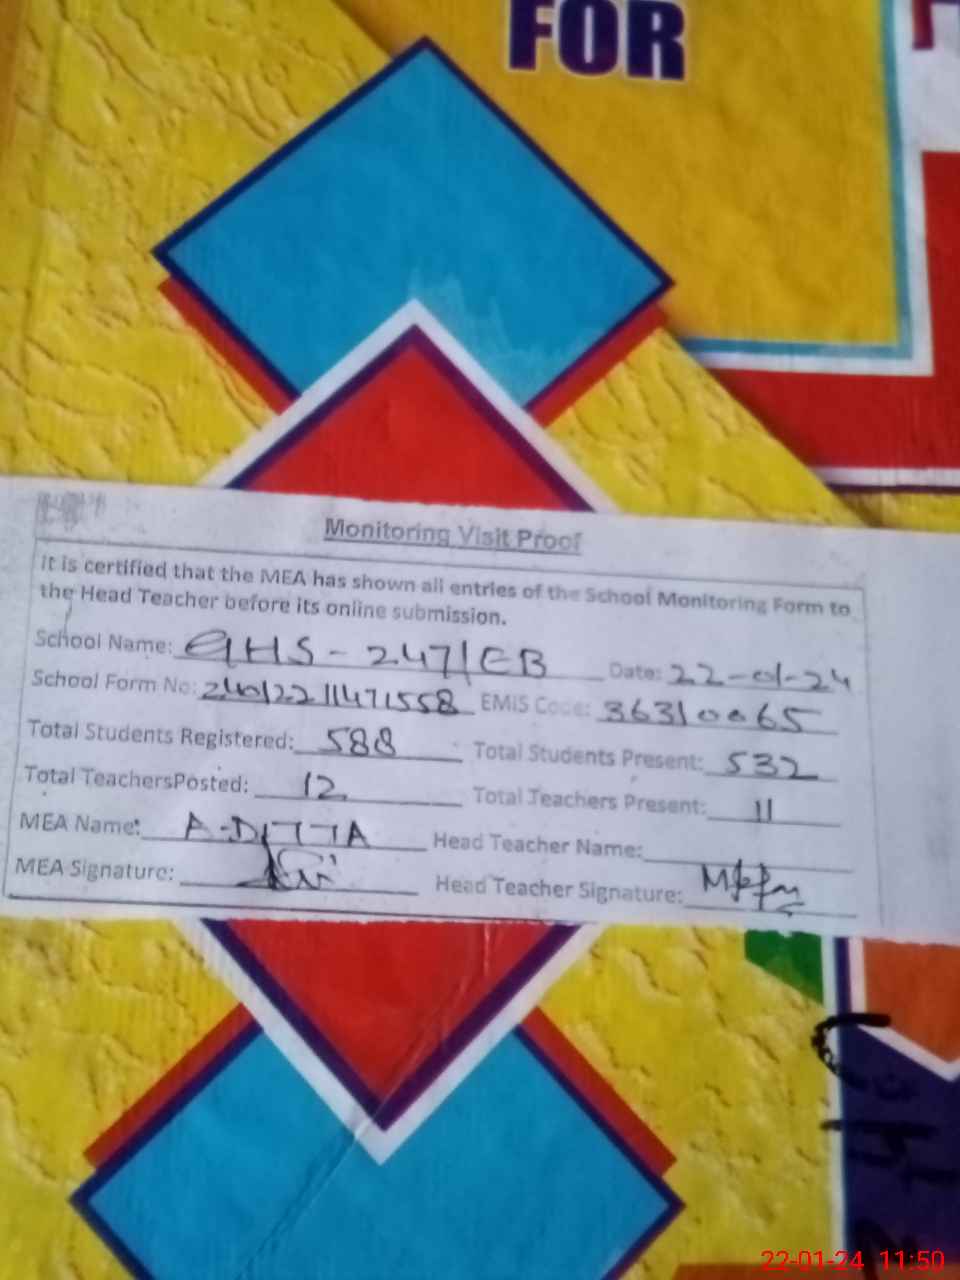 FOR
Monitoring Visit Proof
It is certified that the MEA has shown all entries of the School Monitoring Form to
the Head Teacher before its online submission.
School Name: GHS - 247/EB Date: 22-01-24
School Form No: 24012211471558 EMIS Code: 36310065
Total Students Registered: 588 Total Students Present: 532
Total TeachersPosted: 12 Total Teachers Present: 11
MEA Name: A-DITTA Head Teacher Name:
MEA Signature: Head Teacher Signature:
22-01-24 11:50